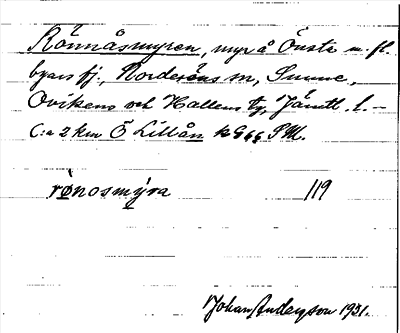 Rönnåsmyren, myr å Önsta m. fl.
byars fj., Norderöns sn, Sunne,
Ovikens och Hallens tg, Jämtl. l. –
C:a 2 km Ö Lillån k966 SM.
rønosmýra 119
Johan Anderson 1931.